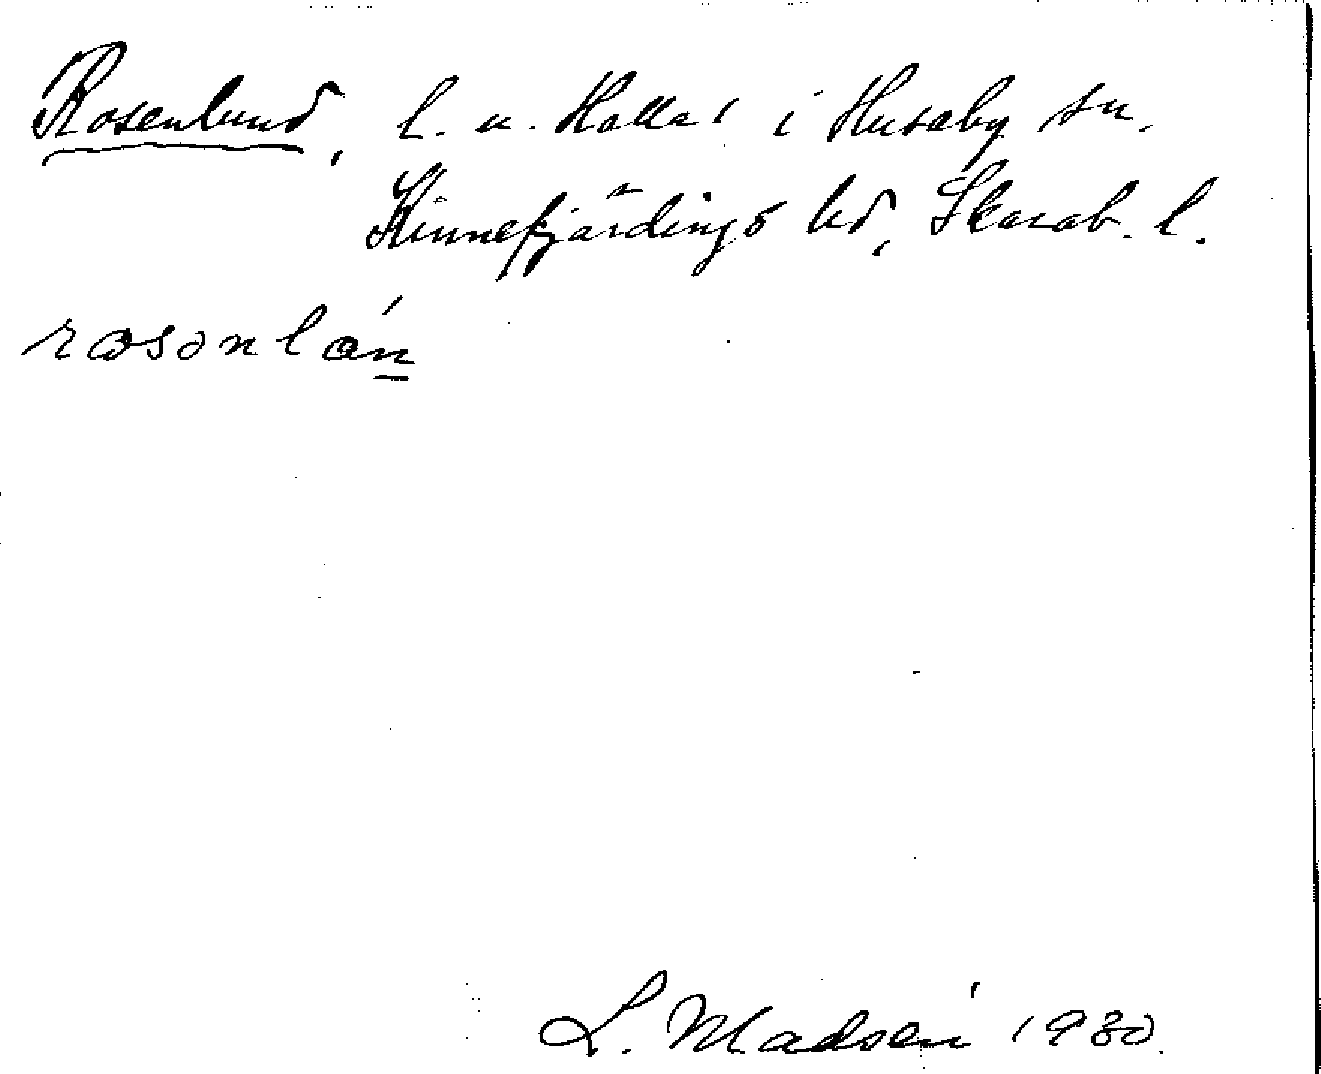 Rosenlund, l. u. Hallar i Husaby sn.
Kinnefjärdings hd, Skarab. l.
rosənlán
L. Madsén 1930.